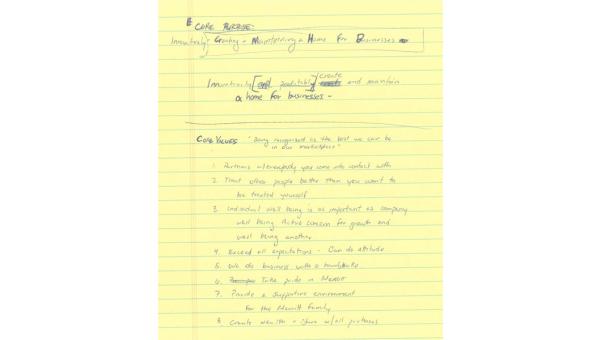 CORE PURPOSE:
Innovatively Creating + Maintaining a Home For Businesses
Innovatively [and profitably] create and maintain
a home for businesses -
CORE VALUES "Being recognized as the best we can be
in our marketplace"
1. Partners w/everybody you come into contact with
2. Treat other people better than you want to
be treated yourself
3. Individual well being is as important as company
well being Active concern for growth and
well being another
4. Exceed all expectations - Can do attitude
5. We do business with a handshake
6. Take pride in Merritt
7. Provide a supportive environment
For the Merritt Family
8. Create wealth + share w/all partners